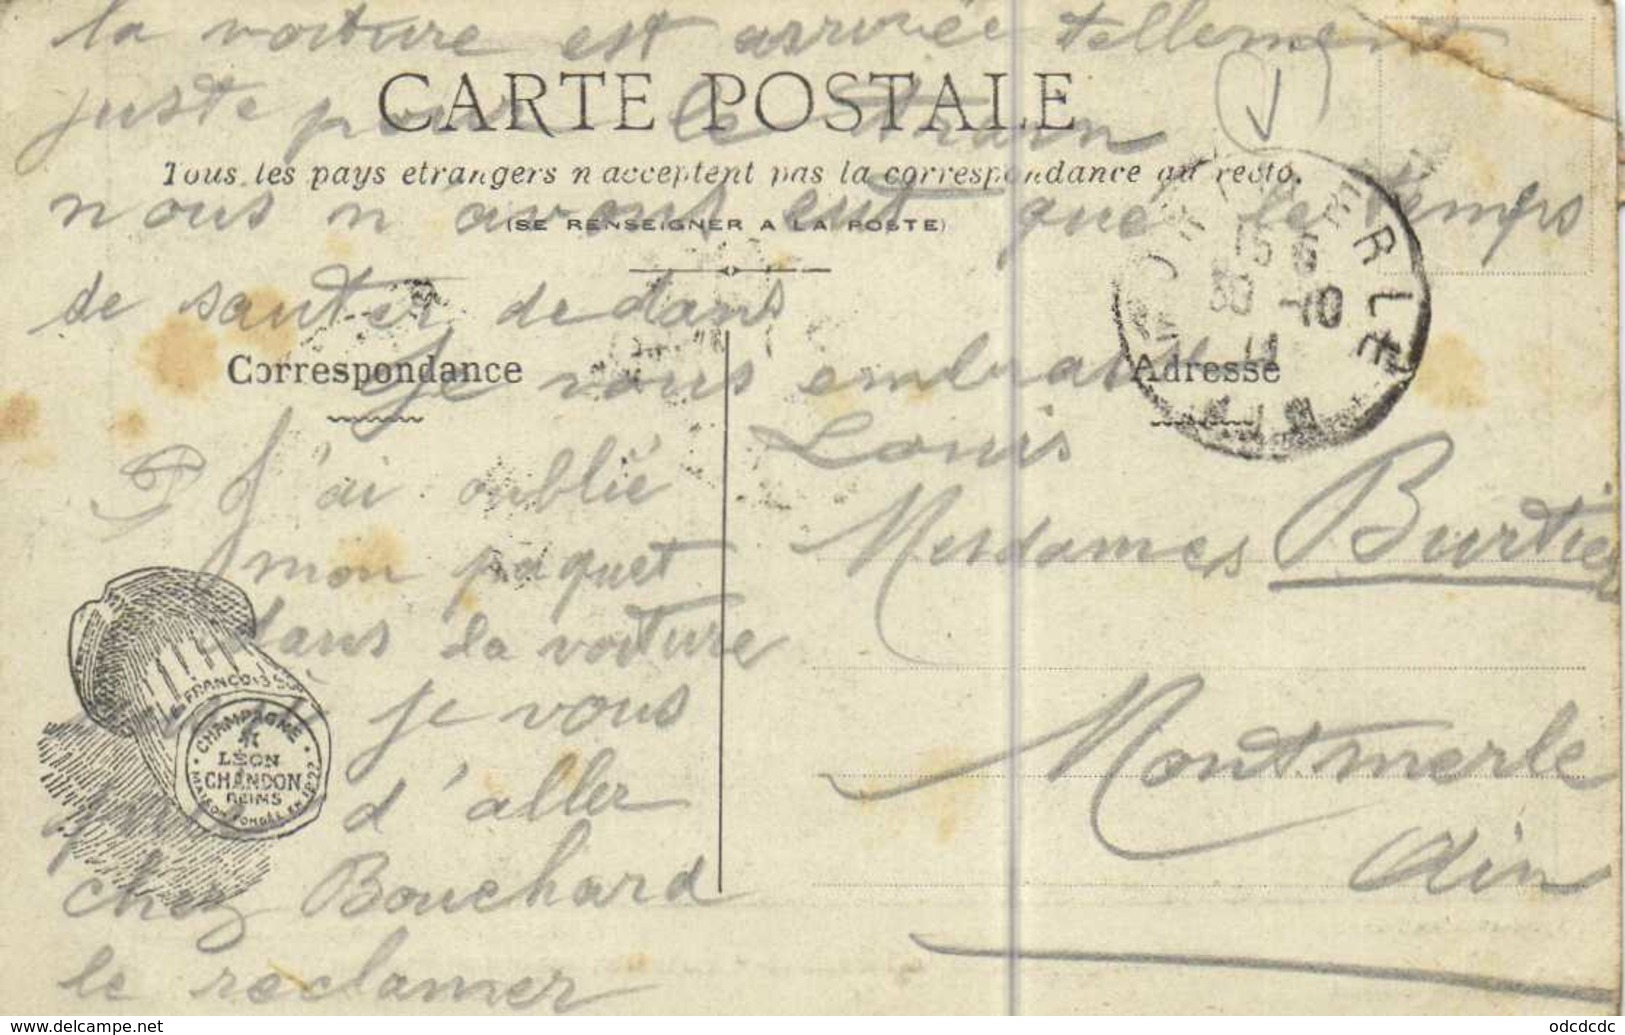 la voiture est arrivée tellement
CARTE POSTALE
juste pour le train
Tous les pays etrangers n acceptent pas la correspondance au recto.
nous n avons eut que le temps
(SE RENSEIGNER A LA POSTE)
de sauter dedans
Correspondance
Adresse
Je vous embrasse
Louis
MONTMERLE
15
30 -10
11
AIN
P J'ai oublié
mon paquet
dans la voiture
je vous
d'aller
chez Bouchard
le reclamer
Mesdames Burtier
Montmerle
Ain
LE FRANCOIS
CHAMPAGNE
LÉON
CHANDON
REIMS
MAISON FONDÉE EN
odcdcdc